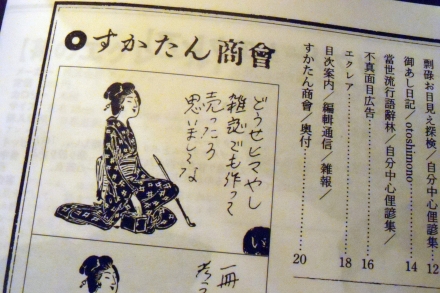 すかたん商會
どうせヒマやし
雑誌でも作って
売ったろ
思いましてな
い
一冊
刺碌お目見え探検／自分中心俚諺集／ 12
御あし日記／otoshimono 14
當世流行語辭林／自分中心俚諺集／
不真面目広告 16
エクレア 18
目次案内／編輯通信／雑報／
すかたん商會／奥付 20